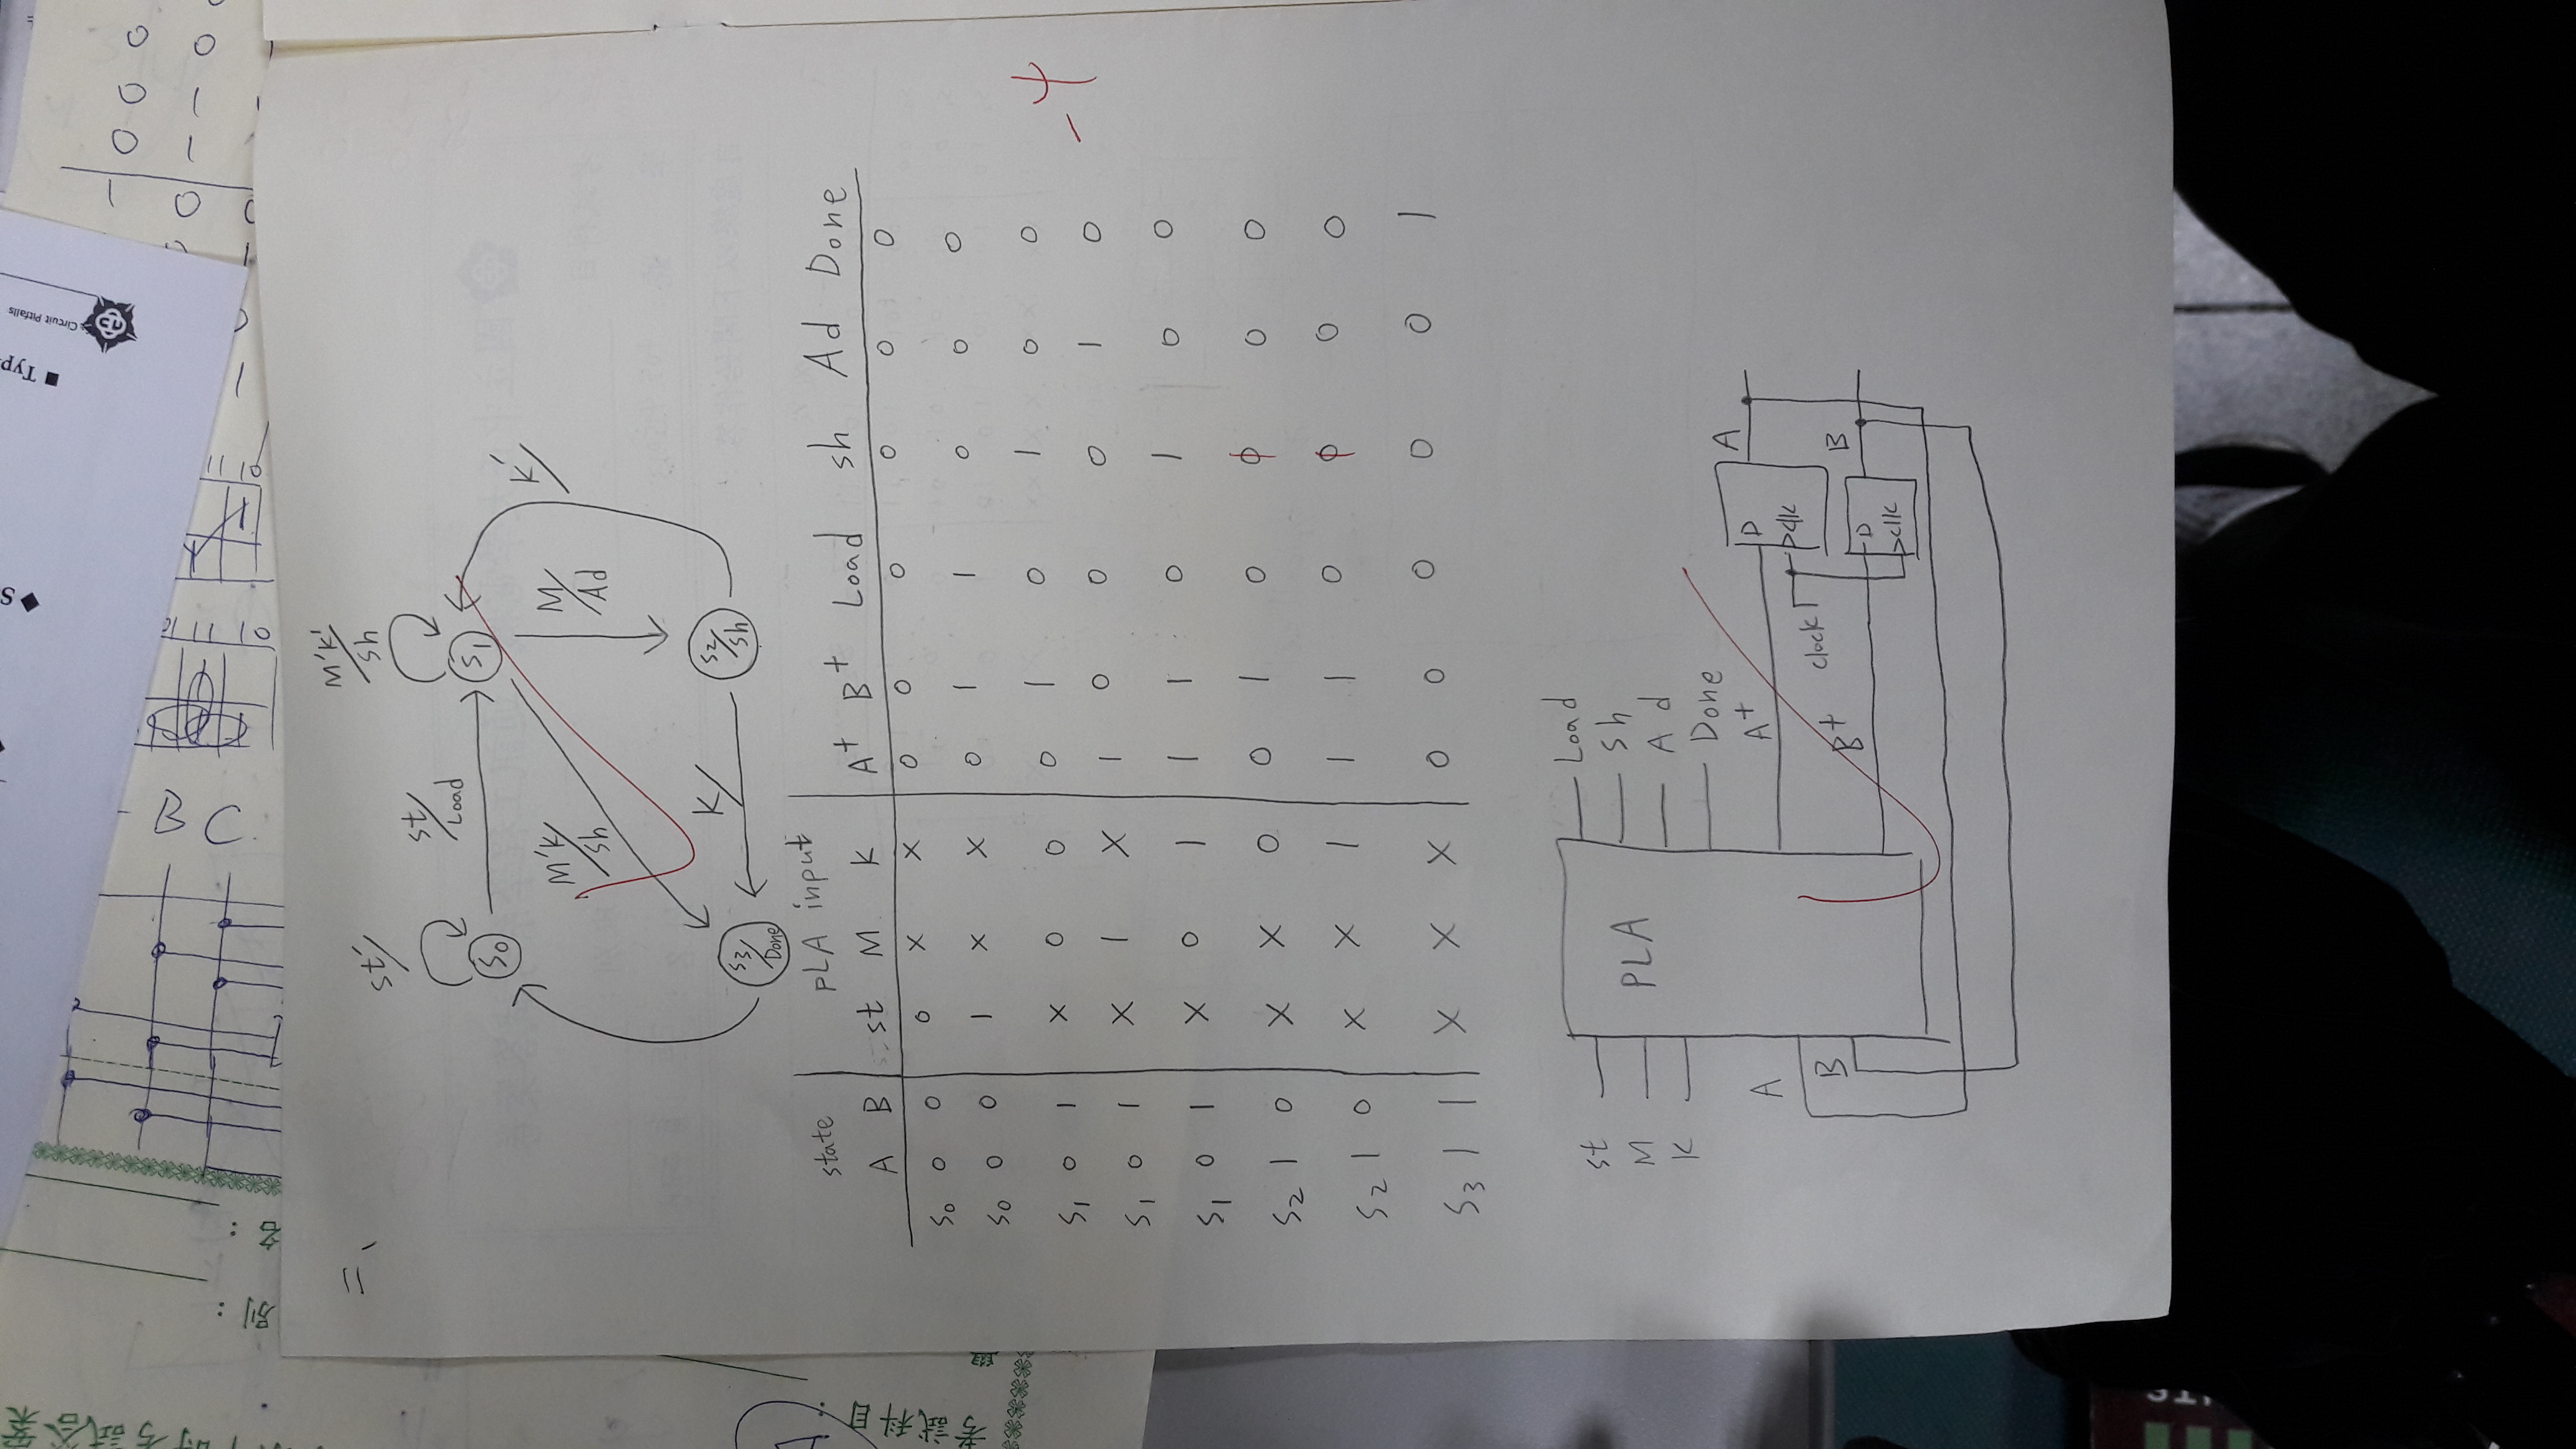 ◆ S
■ Typ
Circuit Pitfalls
時考試答案
別：
名：
考試科目：
B C
二、
st'/
st/Load
M'K'/Sh
S0
S1
M'K/Sh
M/Ad
K'/
K/
S3/Done
S2/Sh
state PLA input
A B st M K A+ B+ Load sh Ad Done
S0 0 0 0 x x 0 0 0 0 0 0
S0 0 0 1 x x 0 1 1 0 0 0
S1 0 1 x 0 0 0 1 0 1 0 0
S1 0 1 x 1 x 1 0 0 0 1 0
S1 0 1 x 0 1 1 1 0 1 0 0
S2 1 0 x x 0 0 1 0 0 0 0
S2 1 0 x x 1 1 1 0 0 0 0
S3 1 1 x x x 0 0 0 0 0 1
-4
st
M
K
A
B
PLA
Load
Sh
Ad
Done
A+
B+
clock
D A
clk
D B
clk